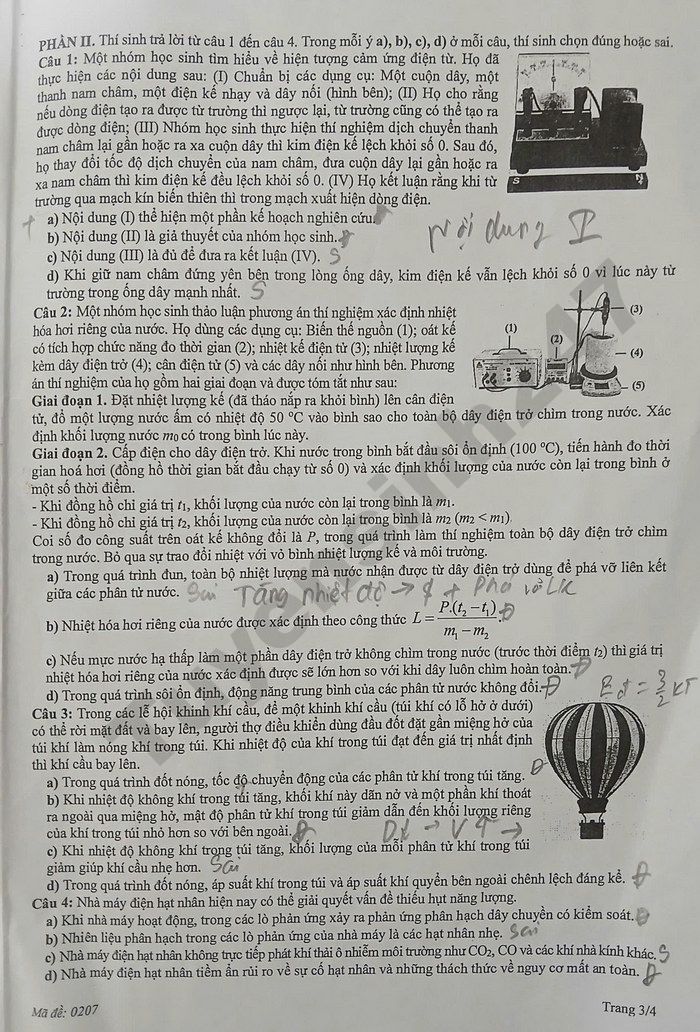 PHẦN II. Thí sinh trả lời từ câu 1 đến câu 4. Trong mỗi ý a), b), c), d) ở mỗi câu, thí sinh chọn đúng hoặc sai.
Câu 1: Một nhóm học sinh tìm hiểu về hiện tượng cảm ứng điện từ. Họ đã
thực hiện các nội dung sau: (I) Chuẩn bị các dụng cụ: Một cuộn dây, một
thanh nam châm, một điện kế nhạy và dây nối (hình bên); (II) Họ cho rằng
nếu dòng điện tạo ra được từ trường thì ngược lại, từ trường cũng có thể tạo ra
được dòng điện; (III) Nhóm học sinh thực hiện thí nghiệm dịch chuyển thanh
nam châm lại gần hoặc ra xa cuộn dây thì kim điện kế lệch khỏi số 0. Sau đó,
họ thay đổi tốc độ dịch chuyển của nam châm, đưa cuộn dây lại gần hoặc ra
xa nam châm thì kim điện kế đều lệch khỏi số 0. (IV) Họ kết luận rằng khi từ
trường qua mạch kín biến thiên thì trong mạch xuất hiện dòng điện.
S N
a) Nội dung (I) thể hiện một phần kế hoạch nghiên cứu.
b) Nội dung (II) là giả thuyết của nhóm học sinh. Đ
Nội dung I
c) Nội dung (III) là đủ để đưa ra kết luận (IV). S
d) Khi giữ nam châm đứng yên bên trong lòng ống dây, kim điện kế vẫn lệch khỏi số 0 vì lúc này từ
trường trong ống dây mạnh nhất. S
Câu 2: Một nhóm học sinh thảo luận phương án thí nghiệm xác định nhiệt
hóa hơi riêng của nước. Họ dùng các dụng cụ: Biến thế nguồn (1); oát kế
có tích hợp chức năng đo thời gian (2); nhiệt kế điện tử (3); nhiệt lượng kế
kèm dây điện trở (4); cân điện tử (5) và các dây nối như hình bên. Phương
án thí nghiệm của họ gồm hai giai đoạn và được tóm tắt như sau:
(1) (2) (3) (4) (5)
Giai đoạn 1. Đặt nhiệt lượng kế (đã tháo nắp ra khỏi bình) lên cân điện
tử, đổ một lượng nước ấm có nhiệt độ 50 °C vào bình sao cho toàn bộ dây điện trở chìm trong nước. Xác
định khối lượng nước m₀ có trong bình lúc này.
Giai đoạn 2. Cấp điện cho dây điện trở. Khi nước trong bình bắt đầu sôi ổn định (100 °C), tiến hành đo thời
gian hoá hơi (đồng hồ thời gian bắt đầu chạy từ số 0) và xác định khối lượng của nước còn lại trong bình ở
một số thời điểm.
- Khi đồng hồ chỉ giá trị t₁, khối lượng của nước còn lại trong bình là m₁.
- Khi đồng hồ chỉ giá trị t₂, khối lượng của nước còn lại trong bình là m₂ (m₂ < m₁).
Coi số đo công suất trên oát kế không đổi là P, trong quá trình làm thí nghiệm toàn bộ dây điện trở chìm
trong nước. Bỏ qua sự trao đổi nhiệt với vỏ bình nhiệt lượng kế và môi trường.
a) Trong quá trình đun, toàn bộ nhiệt lượng mà nước nhận được từ dây điện trở dùng để phá vỡ liên kết
giữa các phân tử nước. Sai Tăng nhiệt độ → + Phá vỡ LK
b) Nhiệt hóa hơi riêng của nước được xác định theo công thức L = P.(t₂ – t₁) / (m₁ – m₂). Đ
c) Nếu mực nước hạ thấp làm một phần dây điện trở không chìm trong nước (trước thời điểm t₂) thì giá trị
nhiệt hóa hơi riêng của nước xác định được sẽ lớn hơn so với khi dây luôn chìm hoàn toàn. Đ
d) Trong quá trình sôi ổn định, động năng trung bình của các phân tử nước không đổi. Đ Eđ = 3/2 kT
Câu 3: Trong các lễ hội khinh khí cầu, để một khinh khí cầu (túi khí có lỗ hở ở dưới)
có thể rời mặt đất và bay lên, người thợ điều khiển dùng đầu đốt đặt gần miệng hở của
túi khí làm nóng khí trong túi. Khi nhiệt độ của khí trong túi đạt đến giá trị nhất định
thì khí cầu bay lên.
a) Trong quá trình đốt nóng, tốc độ chuyển động của các phân tử khí trong túi tăng. Đ
b) Khi nhiệt độ không khí trong túi tăng, khối khí này dãn nở và một phần khí thoát
ra ngoài qua miệng hở, mật độ phân tử khí trong túi giảm dẫn đến khối lượng riêng
của khí trong túi nhỏ hơn so với bên ngoài. Đ
c) Khi nhiệt độ không khí trong túi tăng, khối lượng của mỗi phân tử khí trong túi
giảm giúp khí cầu nhẹ hơn. Sai
d) Trong quá trình đốt nóng, áp suất khí trong túi và áp suất khí quyển bên ngoài chênh lệch đáng kể. Đ
Câu 4: Nhà máy điện hạt nhân hiện nay có thể giải quyết vấn đề thiếu hụt năng lượng.
a) Khi nhà máy hoạt động, trong các lò phản ứng xảy ra phản ứng phân hạch dây chuyền có kiểm soát. Đ
b) Nhiên liệu phân hạch trong các lò phản ứng của nhà máy là các hạt nhân nhẹ. Sai
c) Nhà máy điện hạt nhân không trực tiếp phát khí thải ô nhiễm môi trường như CO₂, CO và các khí nhà kính khác. S
d) Nhà máy điện hạt nhân tiềm ẩn rủi ro về sự cố hạt nhân và những thách thức về nguy cơ mất an toàn. Đ
Mã đề: 0207 Trang 3/4